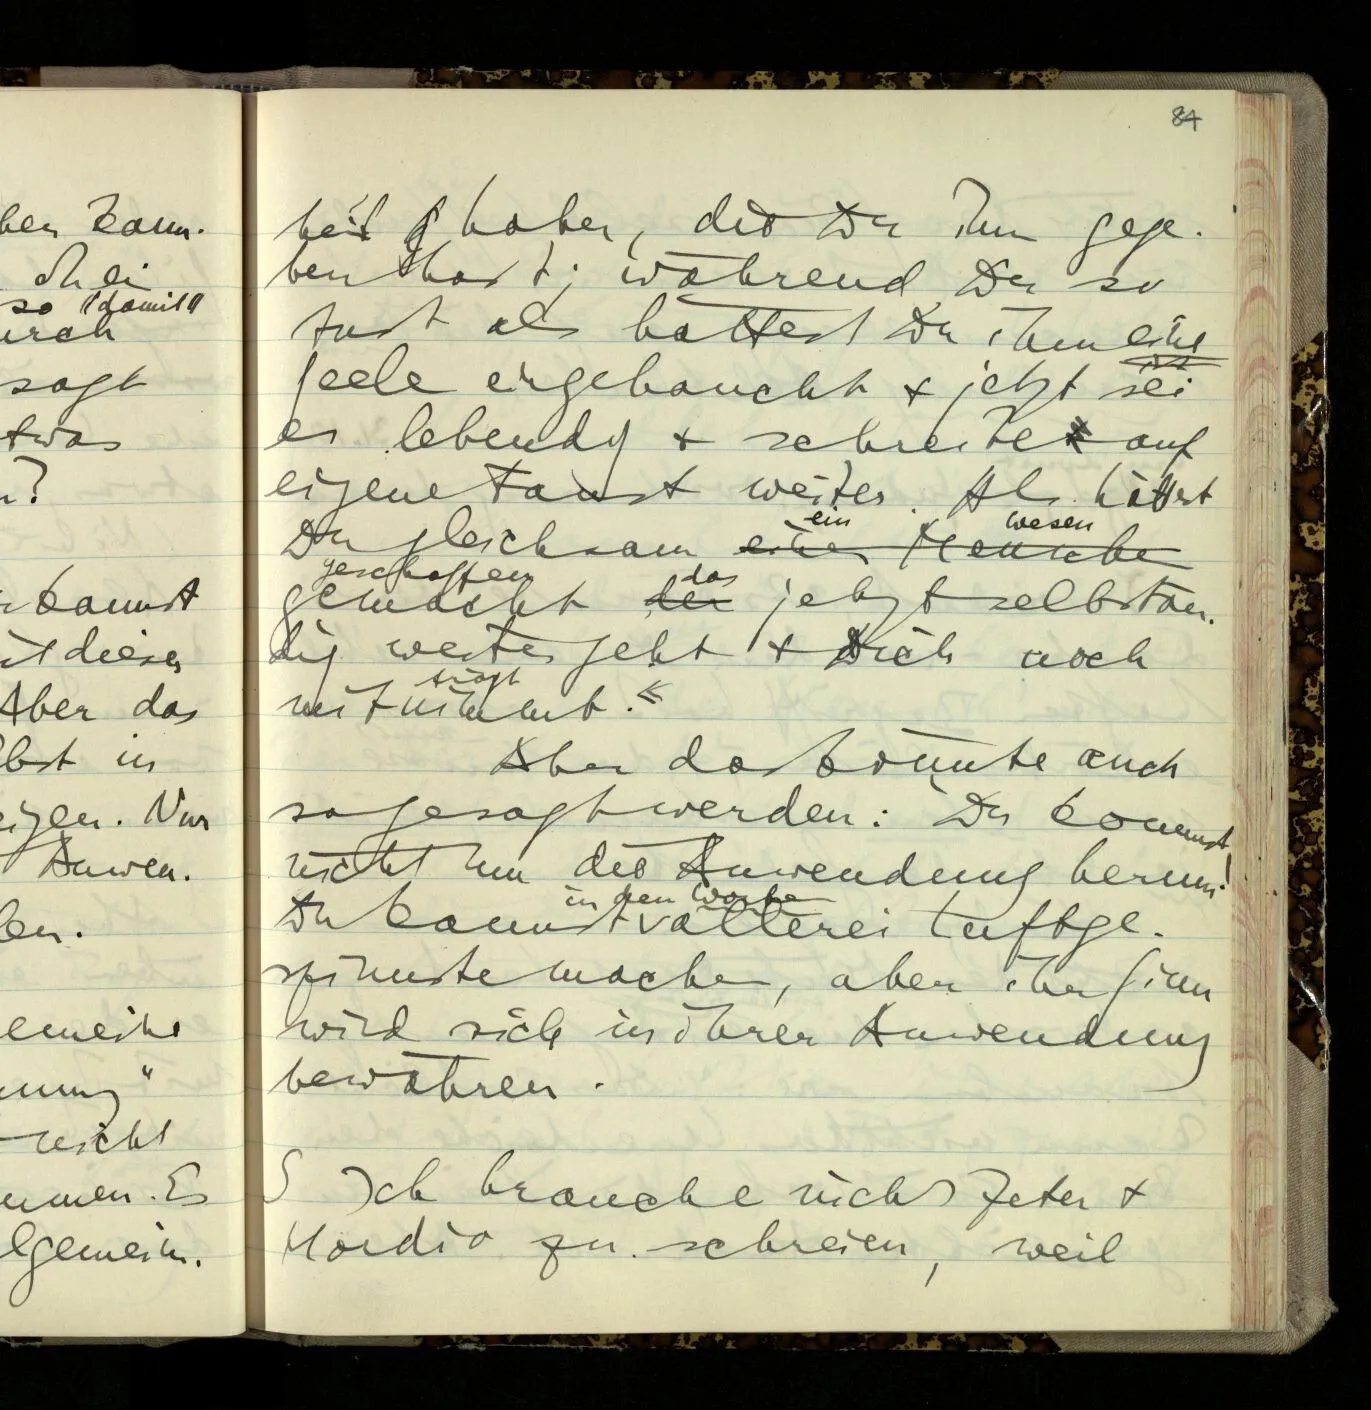 ben kann.
so "damit"
sagt
etwas
n?
kannst
mit diesen
Aber das
lbst in
eigen. Nur
Anwen.
len.
gemeine
nung"
nicht
ommen. Es
lgemein.
84
heit haben, die Du ihm gege-
ben hast; während Du so
tust als hättest Du ihm eine
ist
Seele eingehaucht & jetzt sei
es lebendig & schreite auf
eigene Faust weiter. Als hättest
ein wesen
Du gleichsam einen Menschen
geschaffen das
gemacht der jetzt selbstän-
dig weiter geht & Dich noch
trägt
mitnimmt."
Aber das könnte auch
so gesagt werden: Du kommst
nicht um die Anwendung herum!
in den Worten
Du kannst vollerei Luftge-
spinste machen, aber ihr Sinn
wird sich in ihrer Anwendung
bewähren.
S Ich brauche nicht Zeter &
Mordio zu schreien, weil